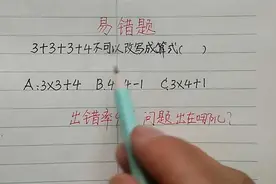 易错题
3+3+3+4不可以改写成算式( )
A:3×3+4 B.4 4-1 C,3×4+1
出错率 问题出在哪儿?